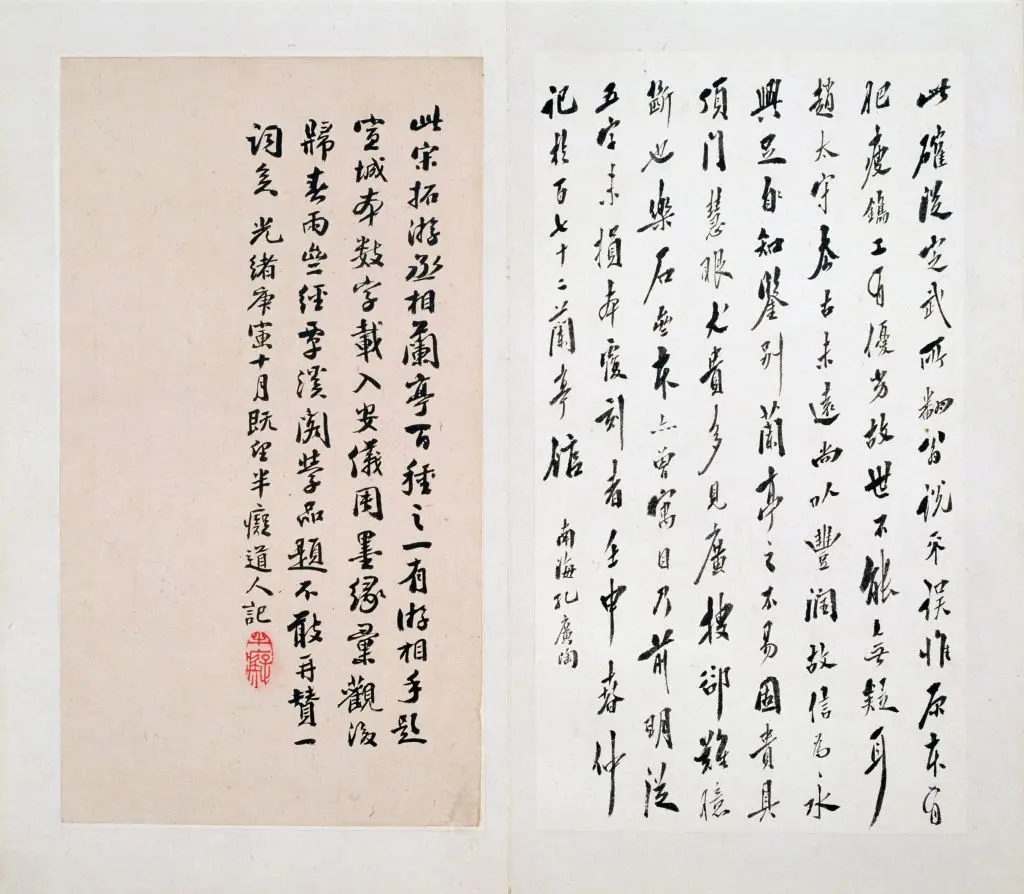 此確從定武所翻說不誤惟原本有
肥瘦鐫工有優劣故世不能無疑耳
趙太守去古未遠尚以豐潤故信為永
興自知鑒別蘭亭之不易固貴具
頂門慧眼尤貴多見廣搜卻難臆
斷也樂石無本亦曾寓目乃前明從
五字未損本覆刻者壬申春仲
記於百七十二蘭亭館 南海孔廣陶
此宋拓游丞相蘭亭百種之一有游相手題
宣城本數字載入安儀周墨緣彙觀後
歸春雨經覃溪閣學品題不敢再贊一
詞矣 光緒庚寅十月既望半癡道人記
半癡